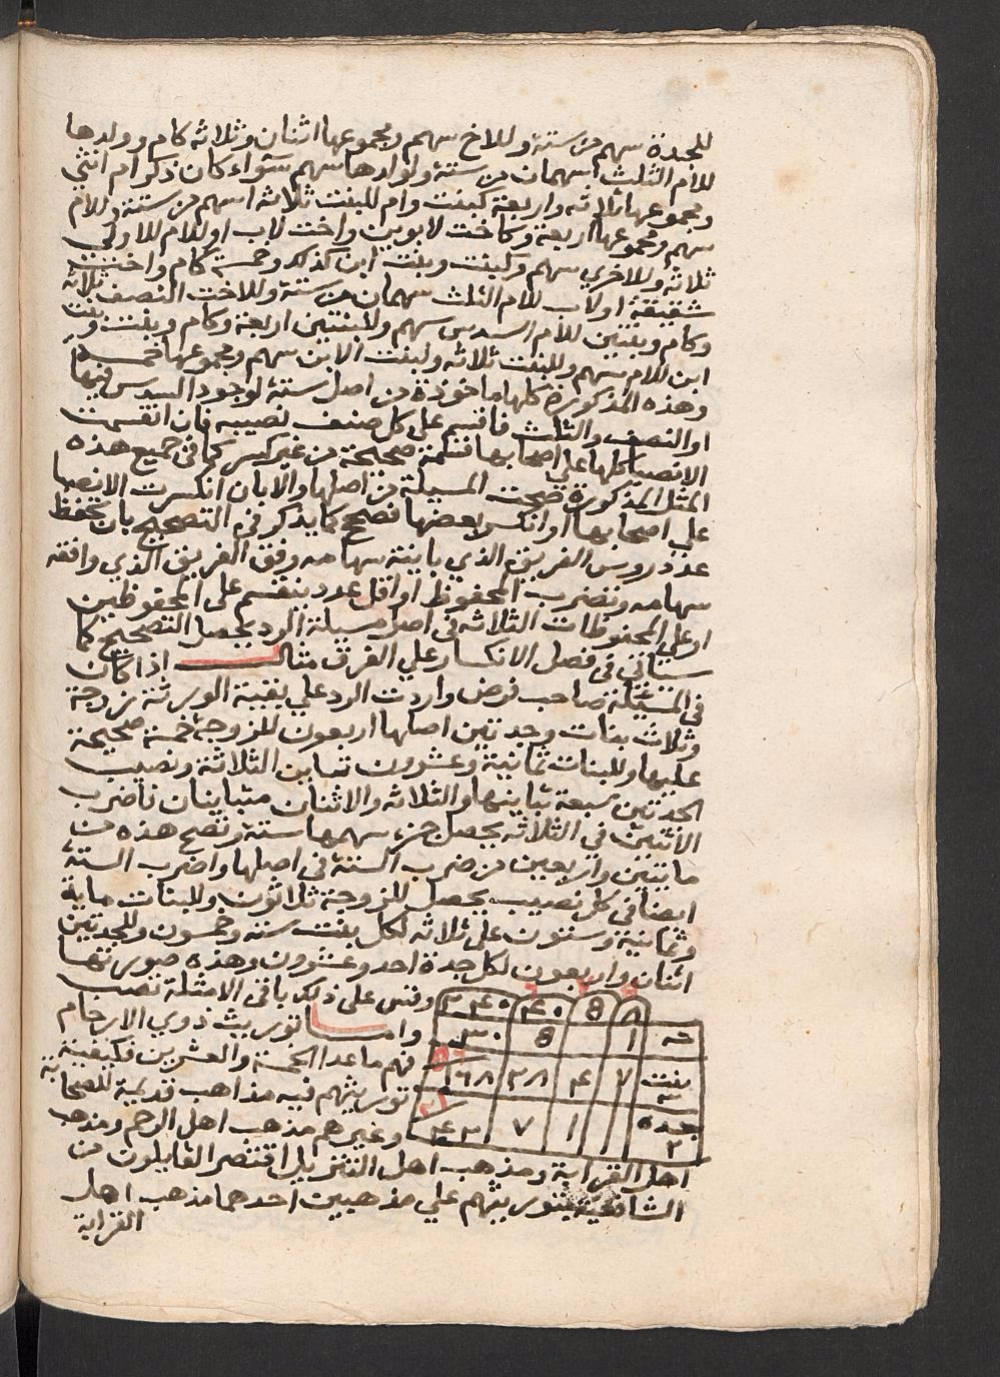 للجدة سهم من ستة وللاخ سهم ومجموعها اثنان وثلاثة كام وولدها
للام الثلث سهمان من ستة ولولدها سهم سواء كان ذكرا ام انثى
ومجموعها ثلاثه واربعة كبنت وام للبنت ثلاثة اسهم من ستة وللام
سهم ومجموعها اربعة وكاخت لابوين واخت لاب او للام للاولى
ثلاثه وللاخرى سهم وكبنت وبنت ابن كذلك وخمسة كام واخت
شقيقة اولاب للام الثلث سهمان من ستة وللاخت النصف ثلاثه
وكام وبنتين للام السدس سهم وللبنتين اربعة وكام وبنت وبنت
ابن للام سهم وللبنت ثلاثه ولبنت الابن سهم ومجموعها خمسة
وهذه المذكورة كلها ماخوذة من اصل ستة لوجود السدس فيها
او النصف والثلث فاقسم على كل صنف نصيبه فان انقسمت
الانصبا كلها على اصحابها قسمة صحيحة من غير كسر كما في جميع هذه
المثل المذكورة صحت المسيلة من اصلها والا بان انكسرت الانصبا
على اصحابها او انكسر بعضها فصحح كما يذكر في التصحيح بان تحفظ
عدد روس الفريق الذي باينته سهامه ووفق الفريق الذي وافقه
سهامه وتضرب المحفوظ او اقل عدد ينقسم على المحفوظين
او على المحفوظات الثلاثه في اصل مسيلة الرد يحصل التصحيح كما
سياتي في فصل الانكسار على الفرق مثال اذا كان
في المسيلة صاحب فرض واردت الرد على بقية الورثة زوجة
وثلاث بنات وجدتين اصلها اربعون للزوجة خمسة صحيحة
عليها وللبنات ثمانية وعشرون تباين الثلاثة ونصيب
الجدتين سبعة تباينها والثلاثه والاثنان متباينان فاضرب
الاثنين في الثلاثه يحصل جزء سهمها ستة وتصح هذه من
مايتين واربعين من ضرب الستة في اصلها واضرب الستة
ايضا في كل نصيب يحصل للزوجة ثلاثون وللبنات ماية
وثمانية وستون على ثلاثه لكل بنت ستة وخمسون وللجدتين
اثنان واربعون لكل جدة احد وعشرون وهذه صورتها
وقس على ذلك باقي الامثلة تصب
واما توريث ذوي الارحام
فهم ماعدا الخمسة والعشرين فكيفية
توريثهم فيه مذاهب قديمة للصحابة
وغيرهم مذهب اهل الرحم ومذهب
٨ ٤٠ ٢٤٠
جه ١ ٣٠
بنت ٣ ٧ ٤ ٢٨ ١٦٨ ٥٦
جده ٢ ١ ٧ ٤٢ ٢١
اهل القرابة ومذهب اهل التنزيل اقتصر القايلون من
الشافعية بتوريثهم على مذهبين احدهما مذهب اهل
القرابة